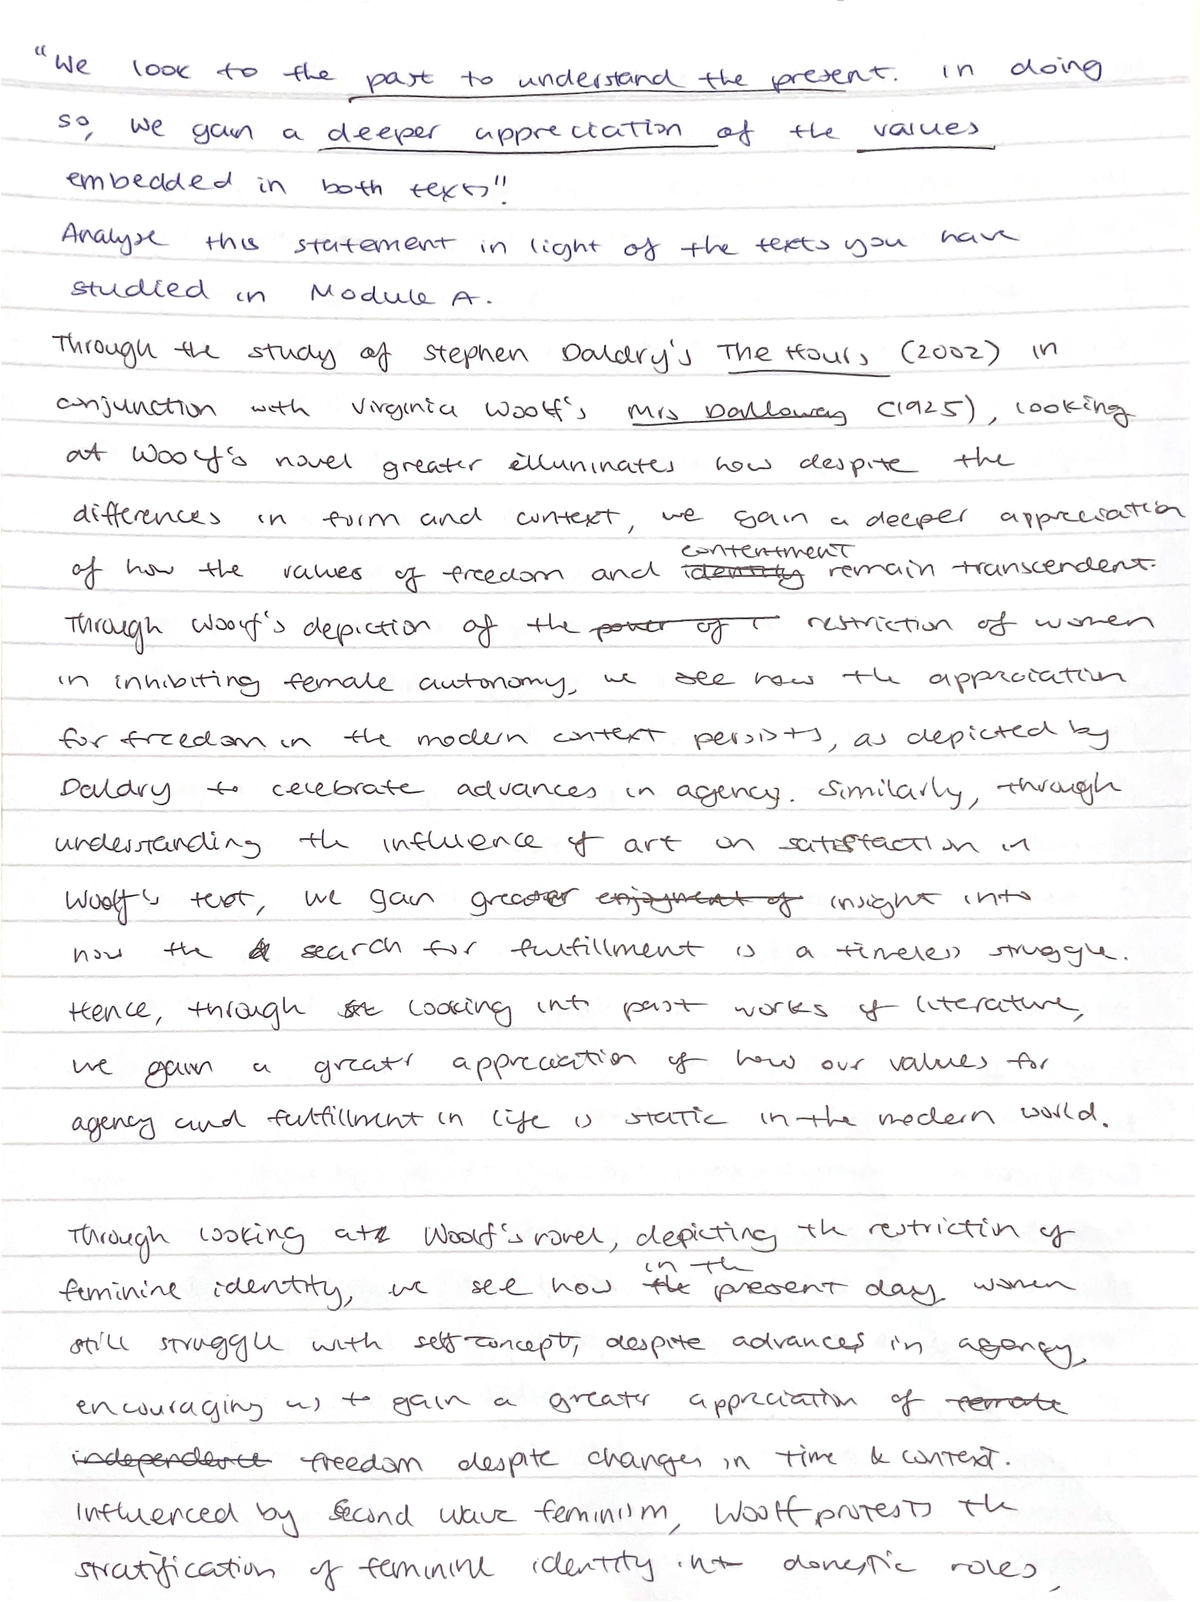 "We look to the past to understand the present. in doing
so, we gain a deeper appreciation of the values
embedded in both texts".
Analyse this statement in light of the texts you have
studied in Module A.
Through the study of Stephen Daldry's The Hours (2002) in
conjunction with Virginia Woolf's Mrs Dalloway (1925), looking
at Woolf's novel greater illuminates how despite the
differences in form and context, we gain a deeper appreciation
contentment
of how the values of freedom and identity remain transcendent.
Through Woolf's depiction of the power of restriction of women
in inhibiting female autonomy, we see how the appreciation
for freedom in the modern context persists, as depicted by
Daldry to celebrate advances in agency. Similarly, through
understanding the influence of art on satisfaction in
Woolf's text, we gain greater enjoyment of insight into
how the search for fulfillment is a timeless struggle.
Hence, through looking into past works of literature,
we gain a greater appreciation of how our values for
agency and fulfillment in life is static in the modern world.
Through looking at Woolf's novel, depicting the restriction of
in the
feminine identity, we see how the present day women
still struggle with self-concept, despite advances in agency,
encouraging us to gain a greater appreciation of female
independence freedom despite changes in time & context.
Influenced by second wave feminism, Woolf protests the
stratification of feminine identity into domestic roles,